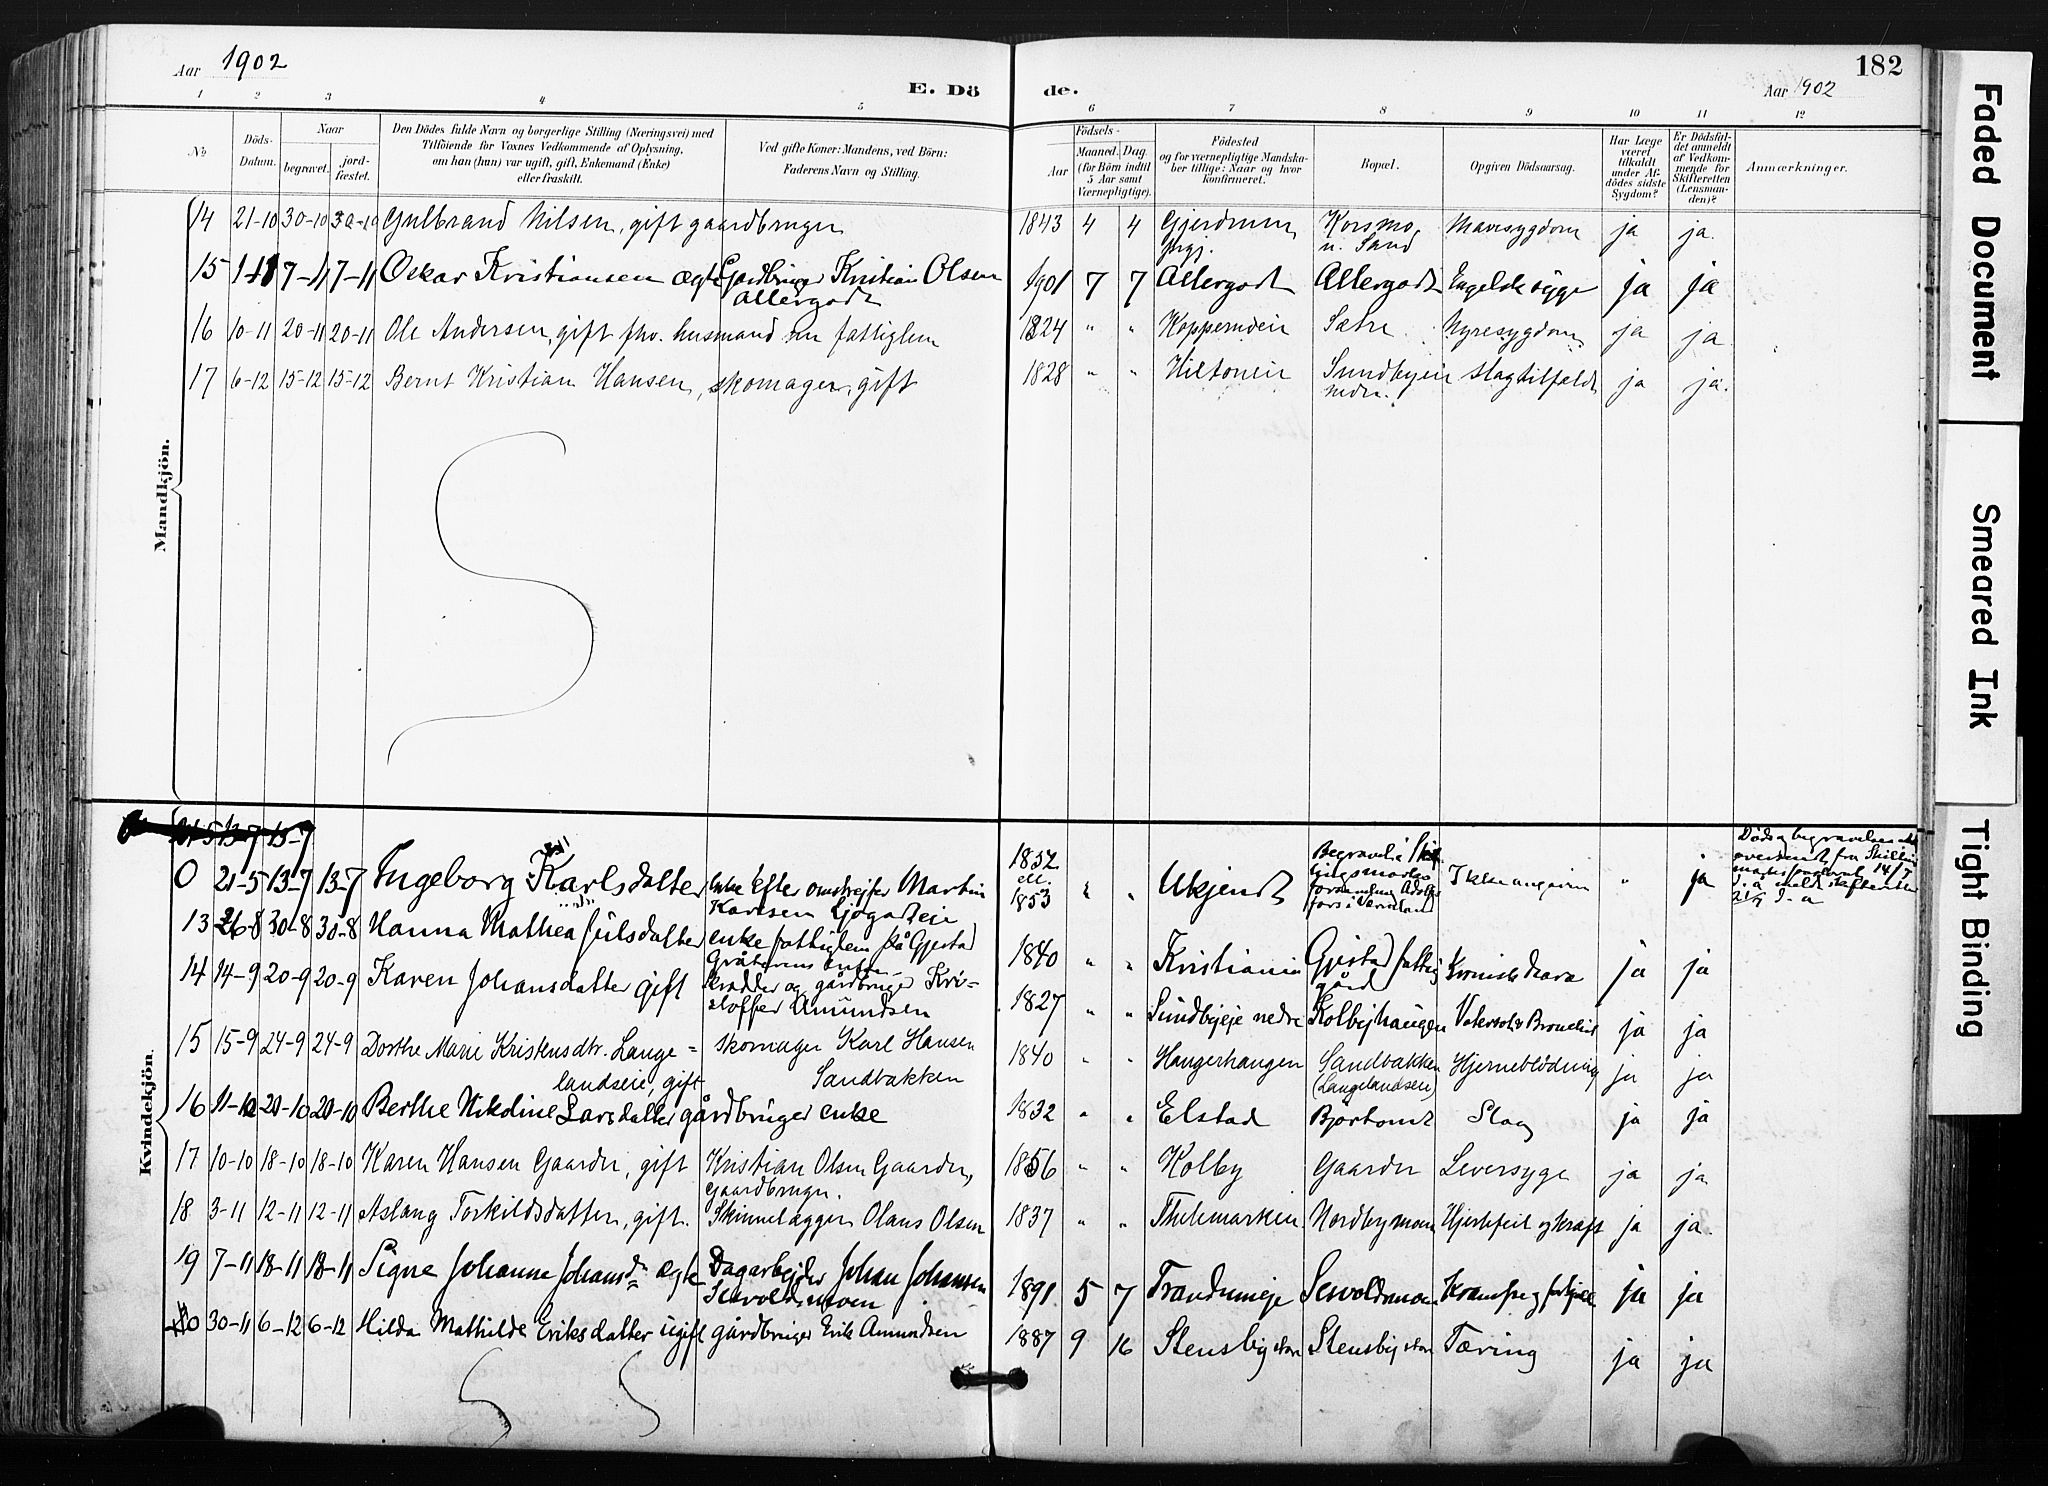 Aar 1902
E. Dö de.
182
Aar 1902
1 2 3 4 5 6 7 8 9 10 11 12
No
Döds-Datum.
Naar
begravet.
jord-fæstet.
Den Dödes fulde Navn og borgerlige Stilling (Næringsvei) med
Tilföiende for Voxnes Vedkommende af Oplysning,
om han (hun) var ugift, gift, Enkemand (Enke)
eller fraskilt.
Ved gifte Koner: Mandens, ved Börn:
Faderens Navn og Stilling.
Födsels-
Aar
Maaned. Dag.
(for Börn indtil
5 Aar samt
Værnepligtige).
Födested
og for værnepligtige Mandska-
ber tillige: Naar og hvor
konfirmeret.
Bopæl.
Opgiven Dödsaarsag.
Har Læge
været
tilkaldt
under Af-
dödes sidste
Sygdom?
Er Dödsfal-
det anmeldt
af Vedkom-
mende for
Skifteretten
(Lensman-
den)?
Anmærkninger.
Mandkjön.
14 21-10 30-10 30-10 Gulbrand Nilsen, gift gaardbruger 1843 4 4 Gjerdrum prgj. Korsmo u. Sand Mavesygdom ja ja.
15 7-11 7-11 Oskar Kristiansen ægte Gardbruger Kristian Olsen Allergodt 1901 7 7 Allergodt Allergodt Engelsk syge ja ja
16 10-11 20-11 20-11 Ole Andersen, gift fhv. husmand nu fattiglem 1824 " " Koppemdeie Sætre Nyresygdom ja ja
17 6-12 15-12 15-12 Bernt Kristian Hansen, skomager, gift 1828 " " Hiltoneie Sundbyeie nedre slagtilfælde ja ja.
Kvindekjön.
21-5 13-7 13-7
0 21-5 13-7 13-7 Ingeborg Karlsdatter Enke Efter omstrejfer Martin Karlsen Ljøgodteie 1852 ell. 1853 " " Ukjendt Begravet i Adolfs fors i Værmland Ikke angiven " ja
13 26-8 30-8 30-8 Hanna Mathea Julsdatter enke fattiglem på Gjestad 1840 " " Kristiania Gjestad fattiggård Kronisk ja ja
14 14-9 20-9 20-9 Karen Johansdatter gift skrædder og gårdbruger Kristoffer Amundsen 1827 " " Sundbyeje nedre Kolbyhaugen Vatersot & Bronchit ja ja
15 15-9 24-9 24-9 Dorthe Marie Kristensdtr. Langelandseie, gift skomager Karl Hansen Sandbakken 1840 " " Haugerhaugen Sandbakken (Langelandseie) Hjerneblödning ja ja
16 11-10 20-10 20-10 Berthe Nikoline Larsdatter gårdbruger enke 1832 " " Elstad Bjørtomt Slag ja ja
17 10-10 18-10 18-10 Karen Hansen Gaarder, gift Kristian Olsen Gaarder, Gaardbruger. 1856 " " Kolby Gaarder Leversyge ja ja
18 3-11 12-11 12-11 Aslaug Torkildsdatter, gift. Skinnelægger Olaus Olsen 1837 " " Thelemarken Nordbymoen Hjertefeil og kræft ja ja.
19 7-11 18-11 18-11 Signe Johanne Johansdr ægte Dagarbejder Johan Johansen Sesvoldsmoen 1891 5 7 Trandumeje Sesvoldmoen Krampe ja ja
20 30-11 6-12 6-12 Hilda Mathilde Eriksdatter ugift gårdbruger Erik Amundsen 1887 9 16 Stensby store Stensby store Tæring ja ja
Faded Document
Smeared Ink
Tight Binding